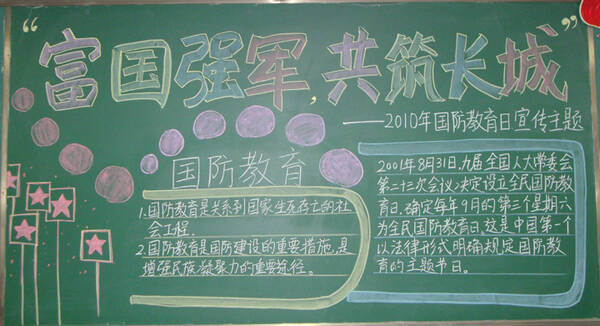 “富国强军,共筑长城”
——2010年国防教育日宣传主题
国防教育
1.国防教育是关系到国家生死存亡的社
会工程.
2.国防教育是国防建设的重要措施,是
增强民族凝聚力的重要途径。
2001年8月31日,九届全国人大常委会
第二十三次会议,决定设立全民国防教
育日.确定每年9月的第三个星期六
为全民国防教育日.这是中国第一个
以法律形式明确规定国防教
育的主题节日。